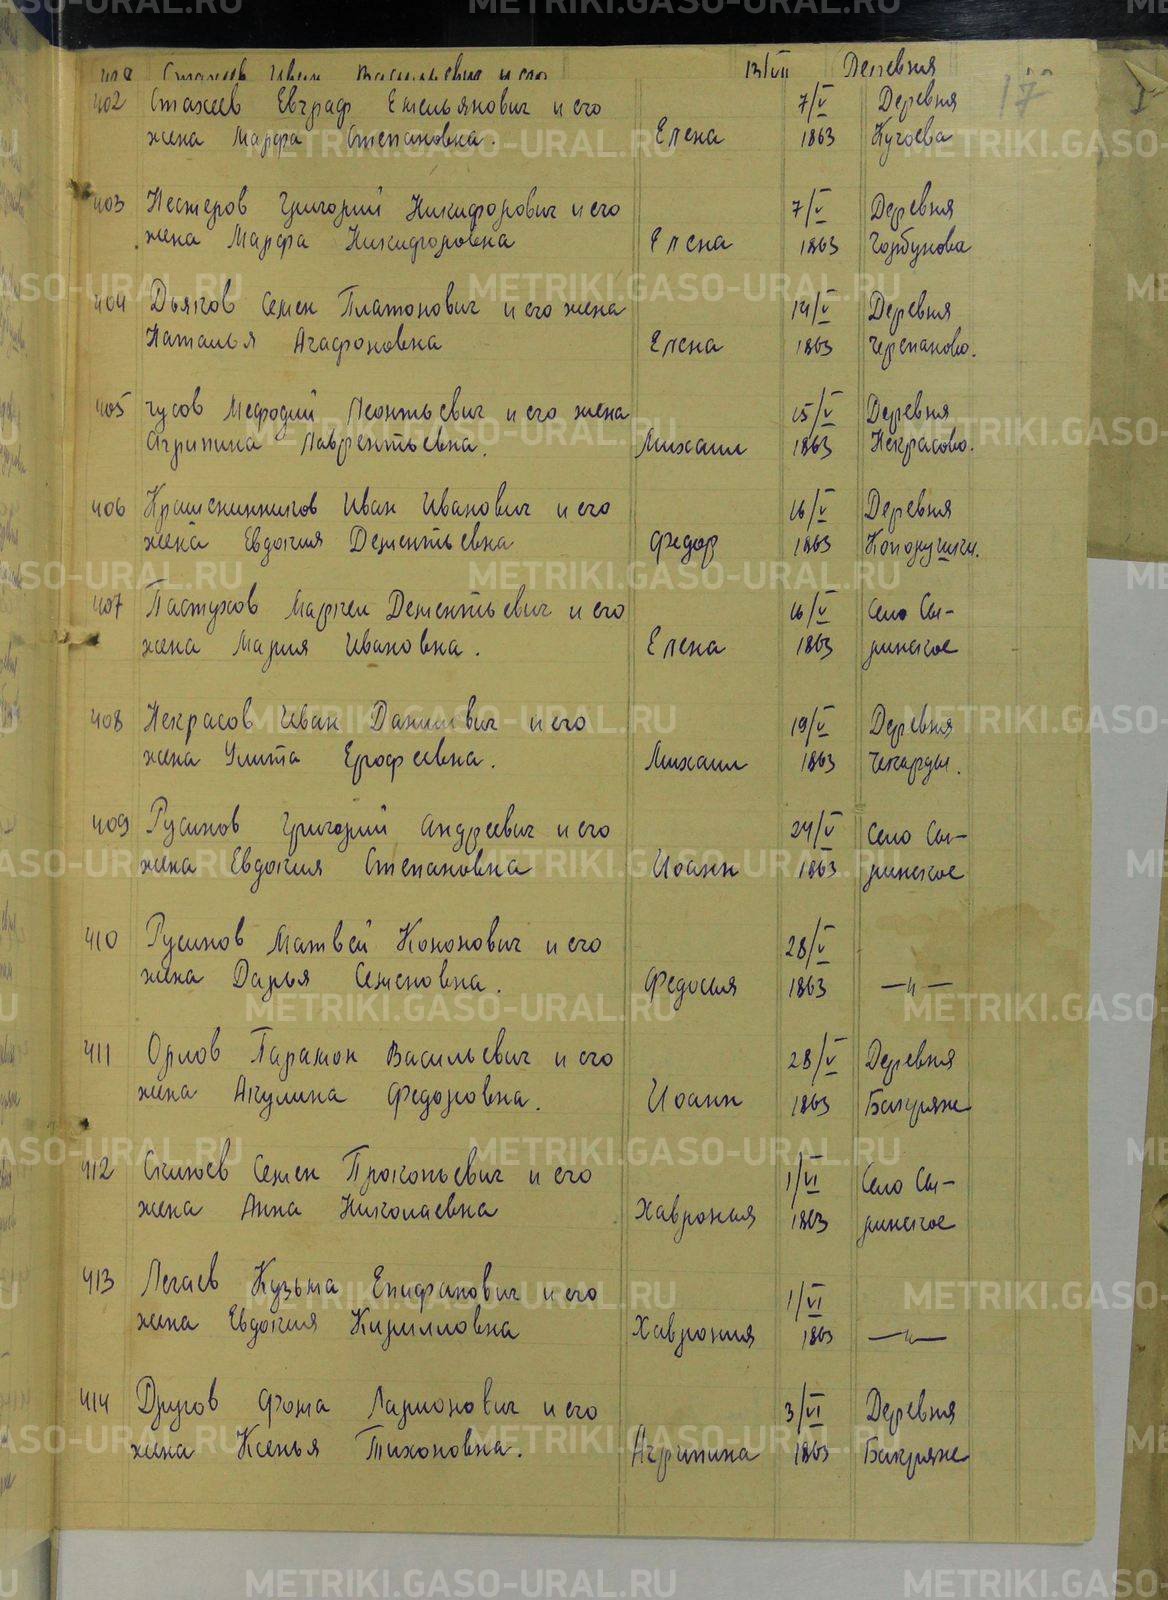 Стахеев Иван Васильевич и его 13/VII Деревня
402 Стахеев Евграф Емельянович и его 7/V Деревня 17
жена Марфа Степановна. Елена 1863 Кучоева
403 Нестеров Григорий Никифорович и его 7/V Деревня
жена Марфа Никифоровна Елена 1863 Горбунова
404 Дьяков Семен Платонович и его жена 14/V Деревня
Наталья Агафоновна Елена 1863 Черепаново.
405 Чусов Мефодий Леонтьевич и его жена 15/V Деревня
Агрипина Лаврентьевна. Михаил 1863 Некрасово.
406 Крашенинников Иван Иванович и его 16/V Деревня
жена Евдокия Дементьевна Федор 1863
407 Пастухов Маркел Дементьевич и его 16/V Село Сы-
жена Мария Ивановна. Елена 1863 ринское
408 Некрасов Иван Данилович и его 19/V Деревня
жена Улита Ерофеевна. Михаил 1863 Чекарды.
409 Русинов Григорий Андреевич и его 24/V Село Сы-
жена Евдокия Степановна Иоанн 1863 ринское
410 Русинов Матвей Кононович и его 28/V
жена Дарья Семеновна. Федосия 1863 —"—
411 Орлов Парамон Васильевич и его 28/V Деревня
жена Акулина Федоровна. Иоанн 1863 Бакряже
412 Семен Прокопьевич и его 1/VI Село Сы-
жена Анна Николаевна Хаврония 1863 ринское
413 Легаев Кузьма Епифанович и его 1/VI
жена Евдокия Кирилловна Хаврония 1863 —"—
414 Другов Фома Ларионович и его 3/VI Деревня
жена Ксенья Тихоновна. Агрипина 1863 Бакряже
METRIKI.GASO-URAL.RU